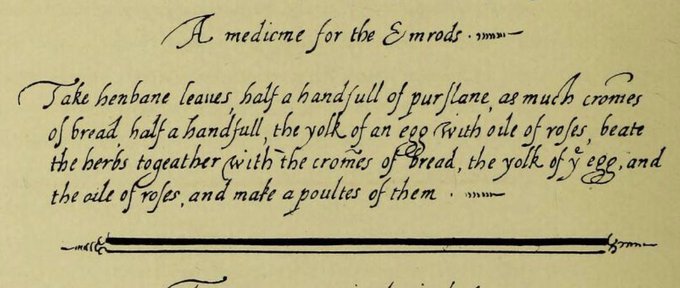 A medicine for the Emrods.
Take henbane leaues, half a handfull of purſlane, as much crom̃es
of bread, half a handfull, the yolk of an egg with oile of roſes, beate
the herbs togeather with the crom̃es of bread, the yolk of yͤ egg, and
the oile of roſes, and make a poultes of them.